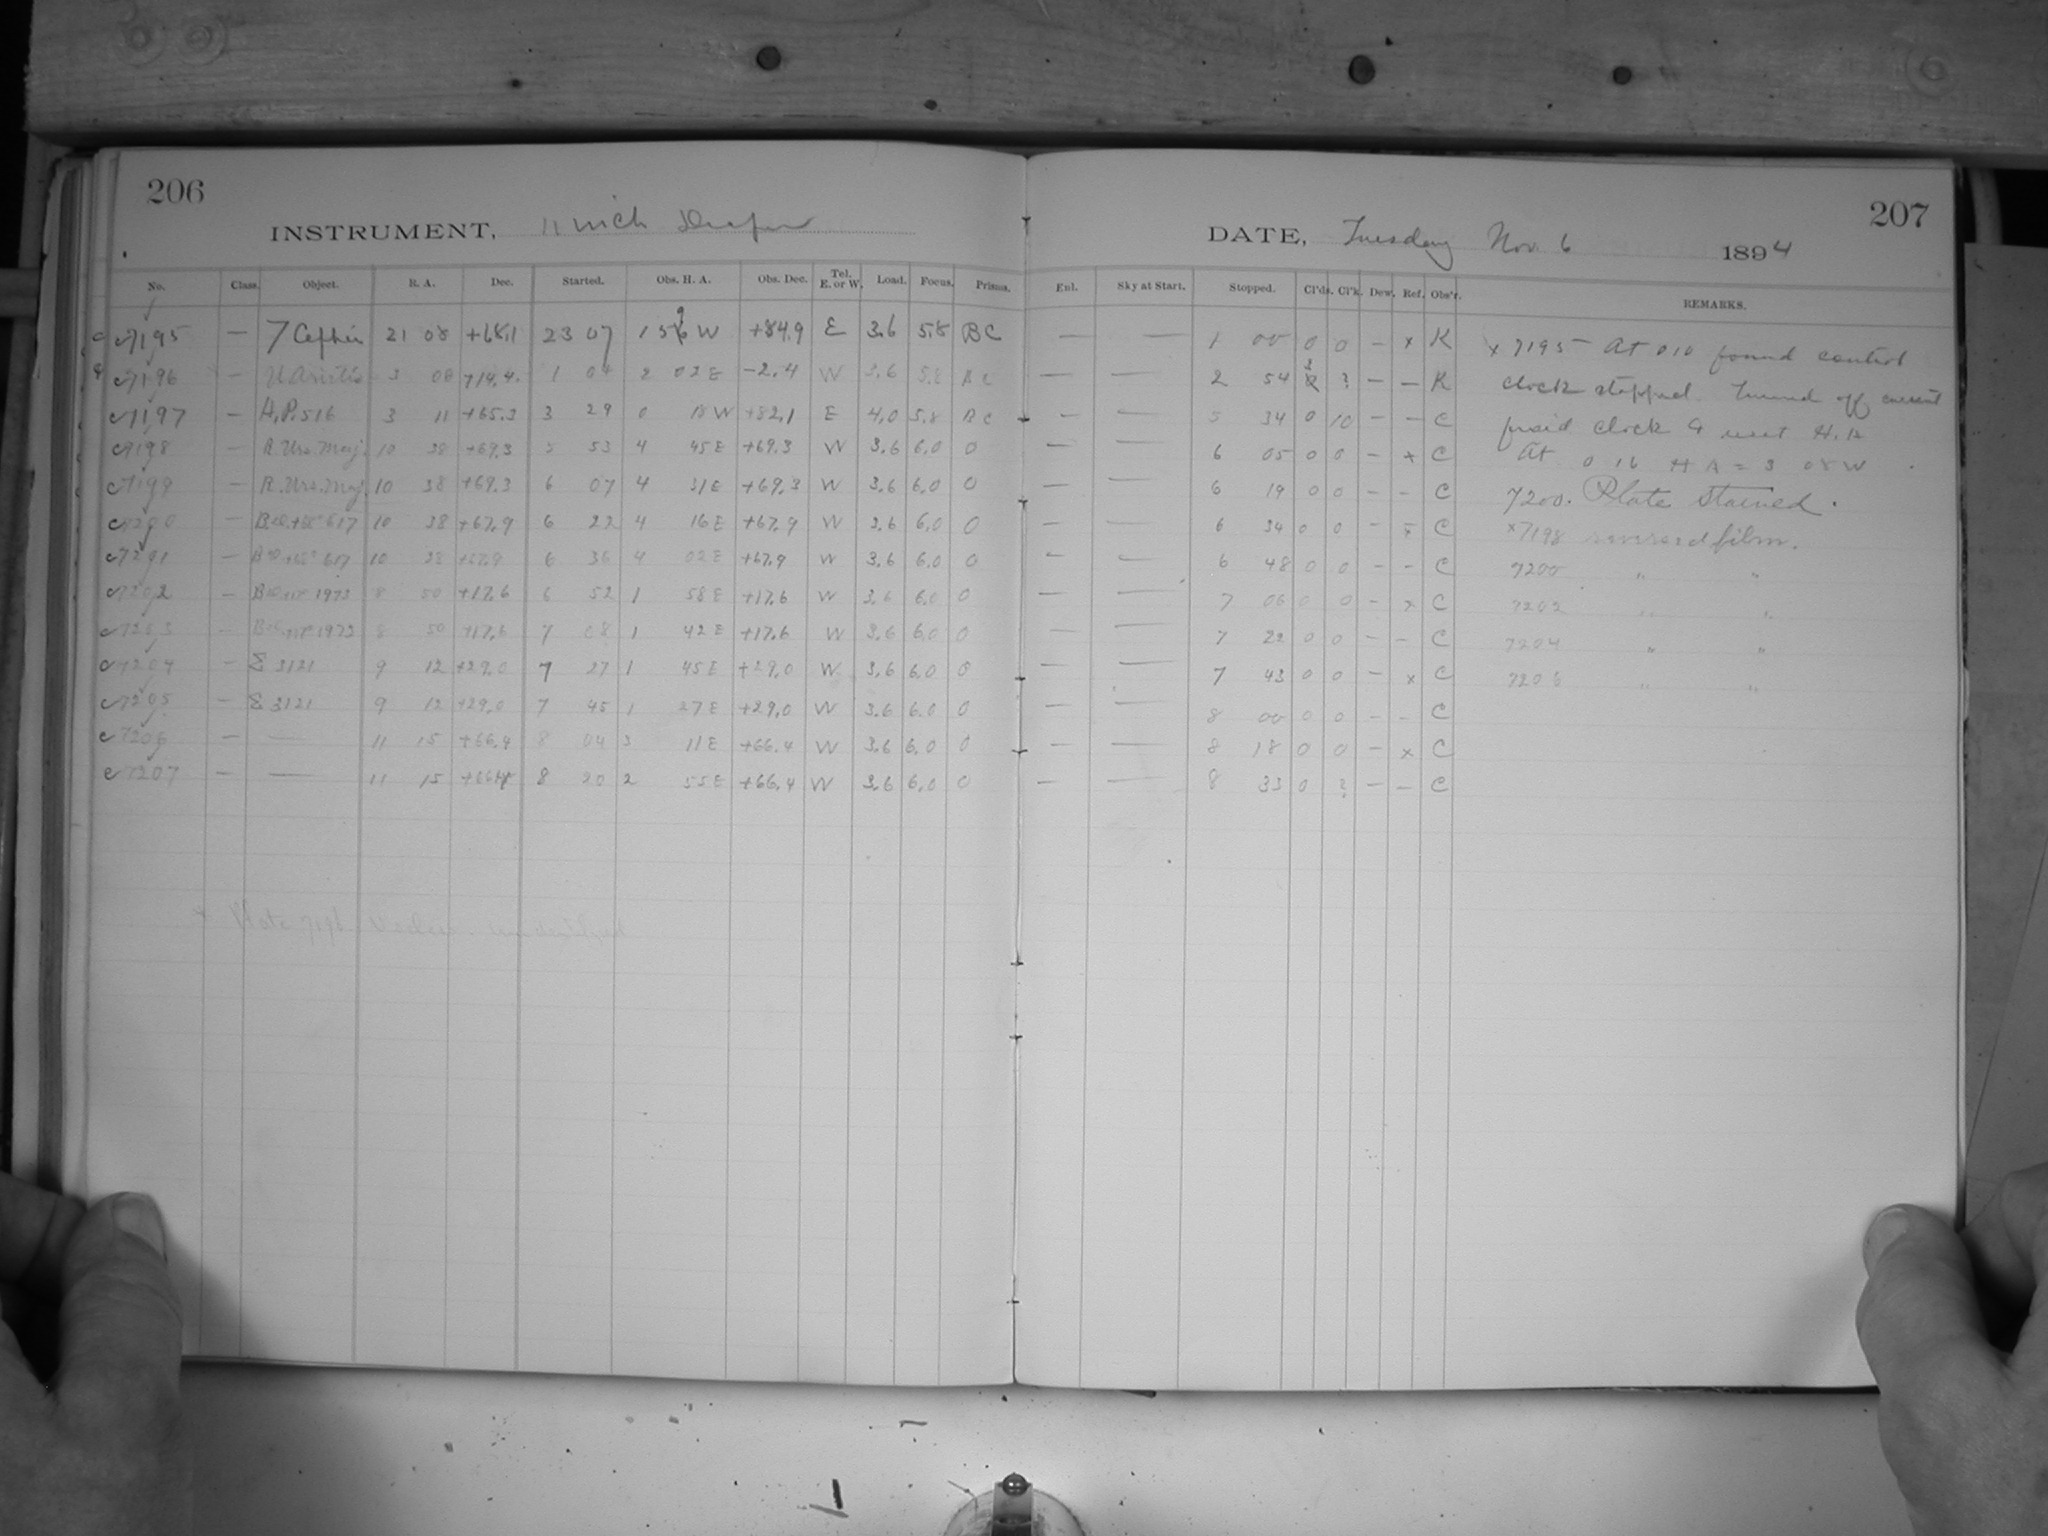 206
INSTRUMENT, 11 inch Draper
No. Class. Object. R. A. Dec. Started. Obs. H. A. Obs. Dec. Tel. E. or W. Load. Focus. Prisms.
c 7195 — T Cephei 21 08 +68.1 23 07 1 59 W +84.9 E 3.6 5.8 BC
c 7196 — U Arietis 3 08 +14.4 1 04 2 02 E -2.4 W 3.6 5.8 BC
c 7197 — H.P. 516 3 11 +65.3 3 29 0 18 W +82.1 E 4.0 5.8 BC
c 7198 — R. Urs. Maj. 10 38 +69.3 5 53 4 45 E +69.3 W 3.6 6.0 0
c 7199 — R. Urs. Maj. 10 38 +69.3 6 07 4 31 E +69.3 W 3.6 6.0 0
c 7200 — 617 10 38 +67.9 6 22 4 16 E +67.9 W 3.6 6.0 0
c 7201 — 617 10 38 +67.9 6 36 4 02 E +67.9 W 3.6 6.0 0
c 7202 — 1973 8 50 +17.6 6 52 1 58 E +17.6 W 3.6 6.0 0
c 7203 — 1973 8 50 +17.6 7 08 1 42 E +17.6 W 3.6 6.0 0
c 7204 — Σ 3121 9 12 +29.0 7 27 1 45 E +29.0 W 3.6 6.0 0
c 7205 — Σ 3121 9 12 +29.0 7 45 1 27 E +29.0 W 3.6 6.0 0
c 7206 — — 11 15 +66.4 8 04 3 11 E +66.4 W 3.6 6.0 0
c 7207 — — 11 15 +66.4 8 20 2 55 E +66.4 W 3.6 6.0 0
Plate
207
DATE, Tuesday Nov. 6 1894
Enl. Sky at Start. Stopped. Cl'ds. Cl'k. Dew. Ref. Obs'r. REMARKS.
— — 1 00 0 0 — x K
— — 2 54 3 ? — — K
— — 5 34 0 10 — — C
— — 6 05 0 0 — x C
— — 6 19 0 0 — — C
— — 6 34 0 0 — x C
— — 6 48 0 0 — — C
— — 7 06 0 0 — x C
— — 7 22 0 0 — — C
— — 7 43 0 0 — x C
— — 8 00 0 0 — — C
— — 8 18 0 0 — x C
— — 8 33 0 ? — — C
x 7195 — At 0 10 found control
clock stopped. Turned off current
clock & reset H.A.
At 0 16 H A = 3 08 W
7200. Plate Stained.
x7198 reversed film.
7200 " "
7202 " "
7204 " "
7206 " "